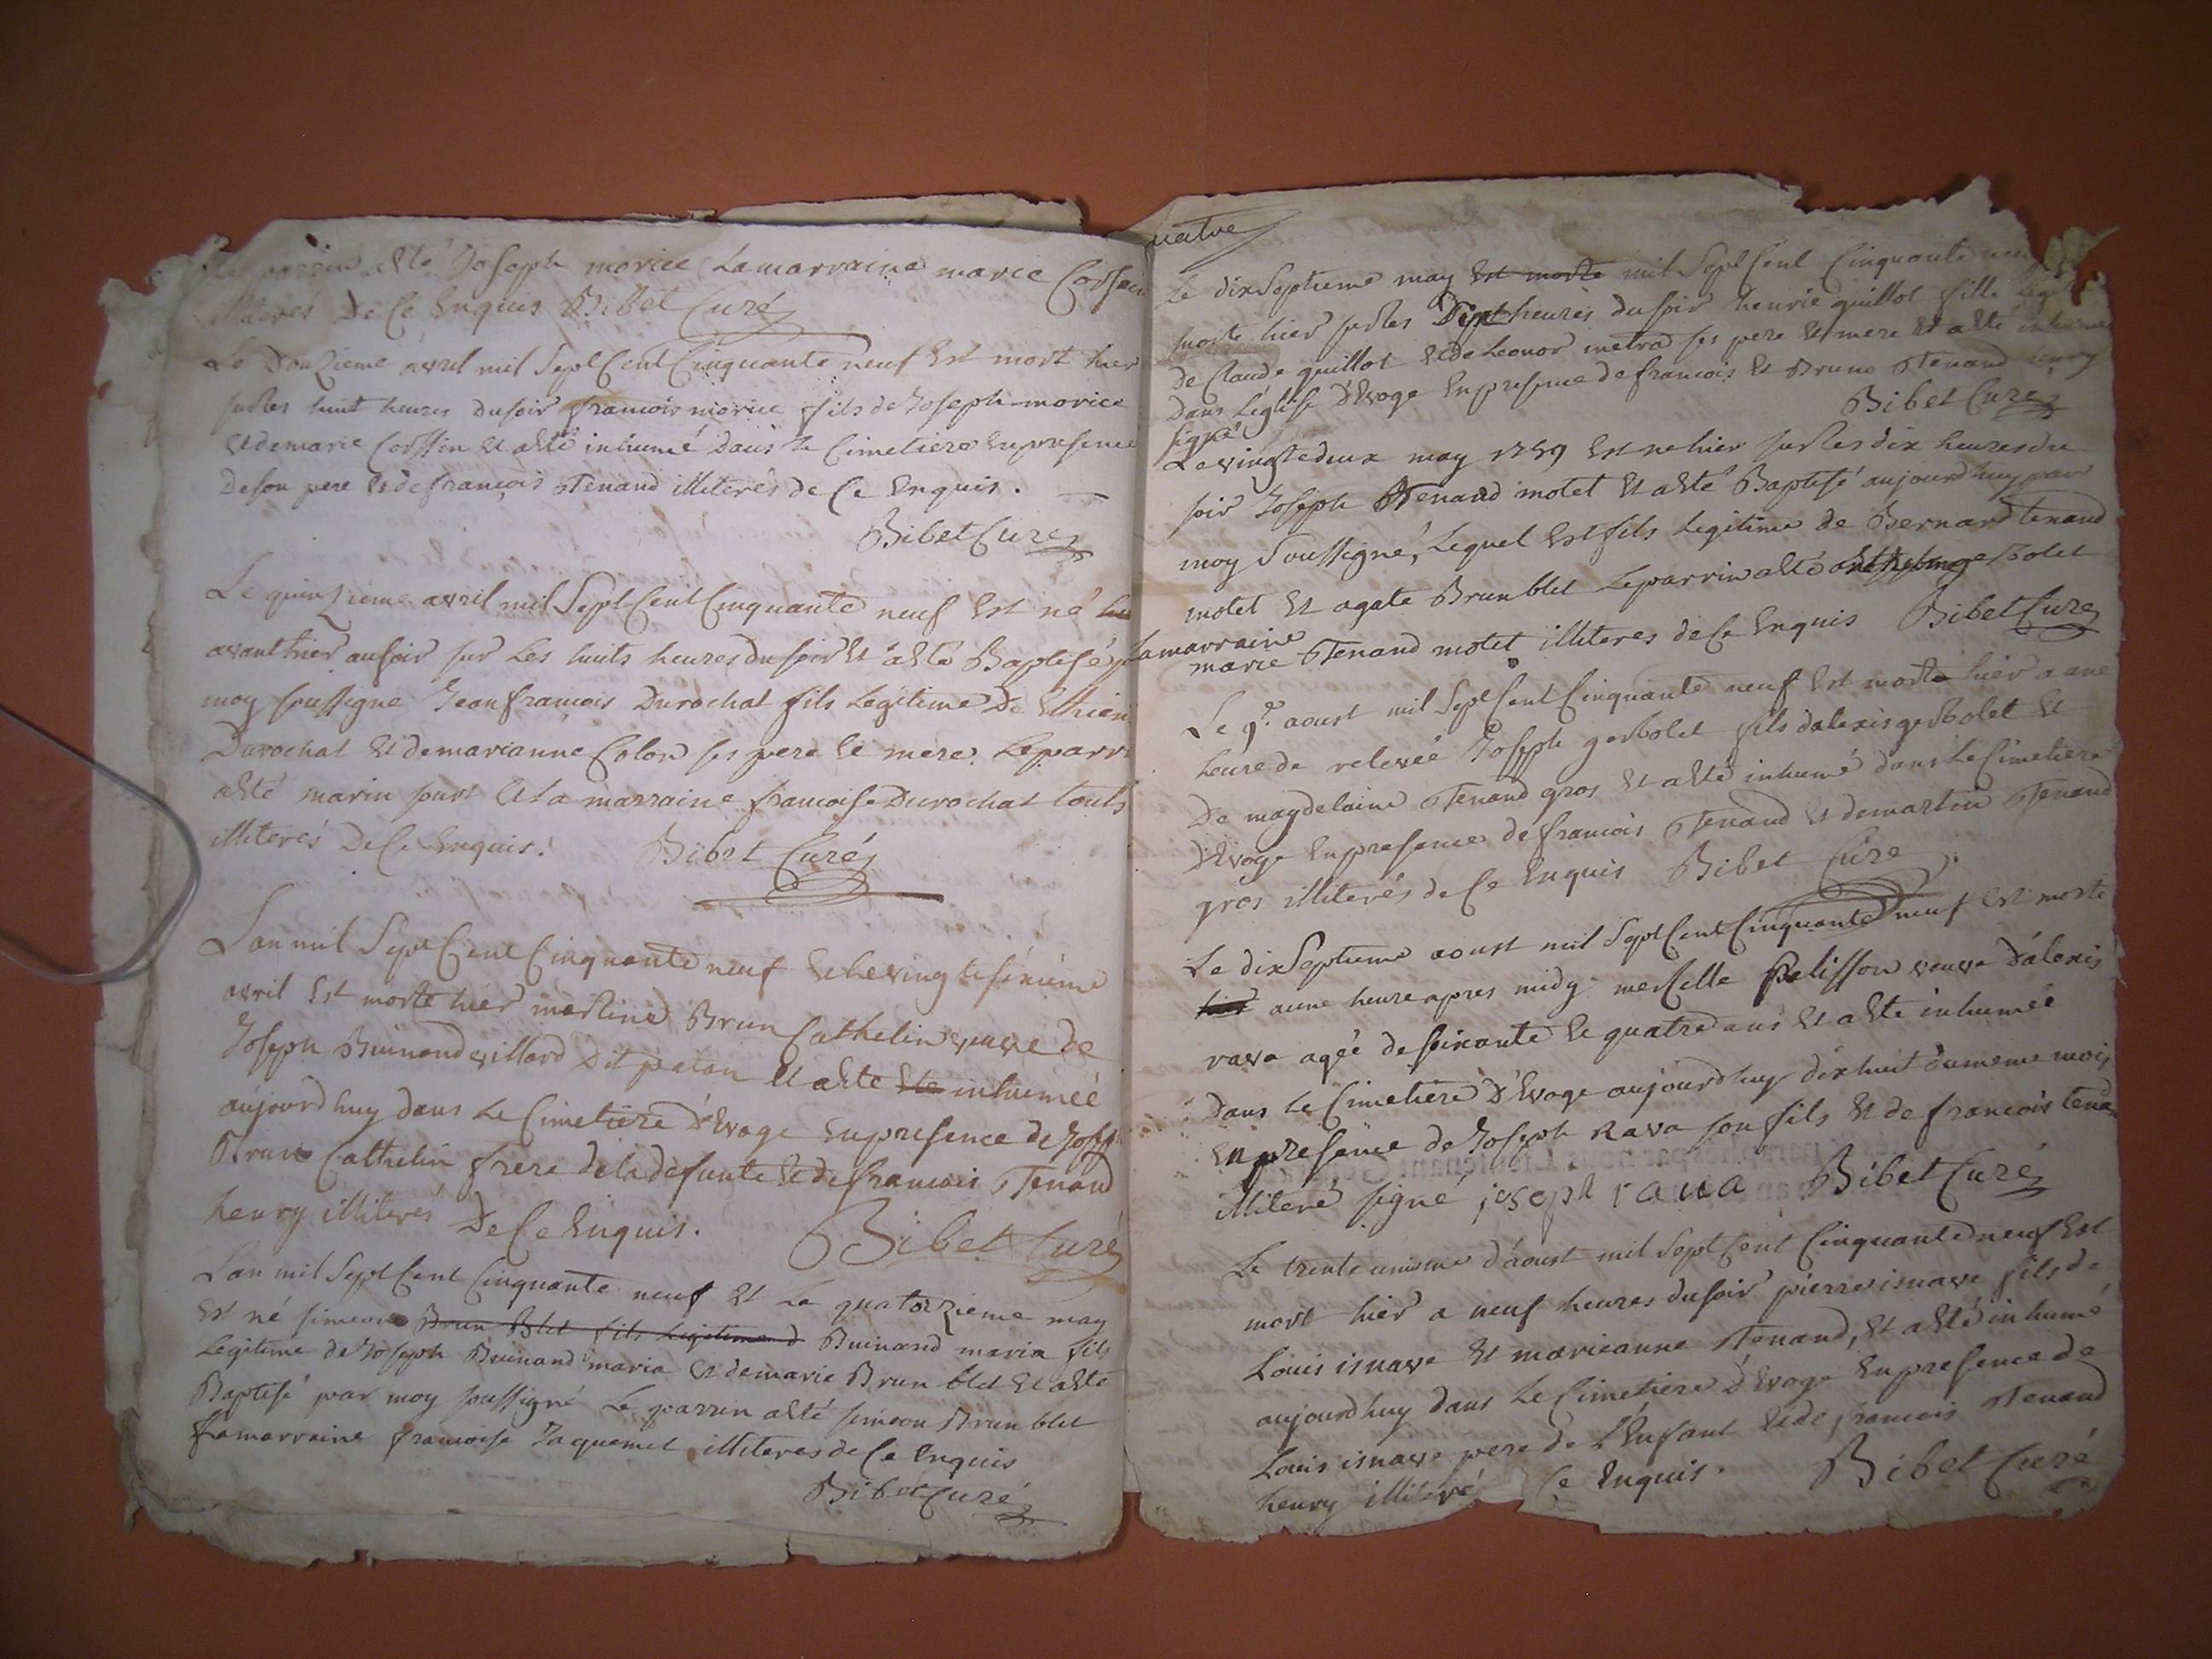 Le parrin aété Joseph morice Lamarraine marie Corssin
illiterés De Ce Enquis Bibet Curé
Le Douzieme avril mil Sept Cent Cinquante neuf Est mort hier
sur les huit heures du soir francois morice fils de Joseph morice
et de marie Corssin et aété inhumé Dans le Cimetiere En presence
De son pere et de françois Tenand illiterés de Ce Enquis.
Bibet Curé
Le quinzieme avril mil Sept Cent Cinquante neuf Est né
avant hier au soir sur Les huits heures du soir Et aété Baptisé p
moy soussigné Jean francois Durochat fils Legitime De Ethien
Durochat et de marianne Colon ses pere et mere. Le parri
aété marin et La marraine francoise Durochat touts
illiterés De Ce Enquis. Bibet Curé
L'an mil Sept Cent Cinquante neuf et Le vingt sixieme
avril Est morte hier Brun Cathelin veuve de
Joseph Buinand villard Dit et aété inhumée
aujourdhuy dans Le Cimetiere d'Evoge En presence de Joseph
Brun Cathelin frere de la defunte et de francois Tenand
henry illiterés De Ce Enquis. Bibet Curé
L'an mil Sept Cent Cinquante neuf Et Le quatorzieme may
Est né simeon Brun Blet fils Legitime d Buinand maria fils
Legitime de Joseph Buinand maria et de marie Brun blet Et aété
Baptisé par moy soussigné Le parrin aété simeon Brun blet
Lamarraine francoise Jaquemet illiteres de Ce Enquis
Bibet Curé
uatre
Le dix Septieme may Est morte mil Sept Cent Cinquante neu
morte hier sur les Sept heures du soir henrie guillot fille Leg
De Claude guillot et de Leonor metra ses pere et mere et aété inhumé
Dans L'eglise d'Evoge En presence de francois et Bruno Tenand henry
signé Bibet Curé
Le vingt e deux may 1759 Est né hier sur les dix heures du
soir Joseph Tenand motet et aété Baptisé aujourdhuy par
moy Soussigné, Lequel Est fils Legitime de Bernard tenand
motet Et agate Brun blet Le parrin aété gerbolet
Lamarraine
marie Tenand motet illiteres de Ce Enquis Bibet Curé
Le 9e. aoust mil Sept Cent Cinquante neuf Est morte hier a une
heure de relevée Joseph gerbolet fils d'alexis gerbolet Et
De magdelaine Tenand gros Et aété inhumé dans Le Cimetiere
d'Evoge En presence de francois Tenand et de martin Tenand
gros illiterés de Ce Enquis Bibet Cure
Le dix Septieme aoust mil Sept Cent Cinquante neuf Est morte
hier a une heure apres midy Pelisson veuve d'alexis
rava agée de soixante et quatre ans Et aété inhumée
Dans Le Cimetiere d'Evoge aujourdhuy dix huit du meme mois
En presence de Joseph Rava son fils Et de francois tena
illiteré signé joseph raua Bibet Curé
Le trente unieme d'aoust mil Sept Cent Cinquante neuf Est
mort hier a neuf heures du soir pierre isnave fils de
Louis isnave Et marieanne Tenand, Et aété inhumé
aujourdhuy dans Le Cimetiere d'Evoge En presence de
Louis isnave pere de L'Enfant Et de francois Tenand
henry illiteré Ce Enquis. Bibet Curé